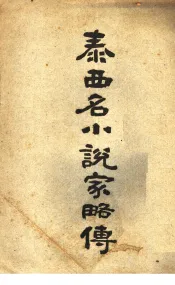 泰西名小說家略傳